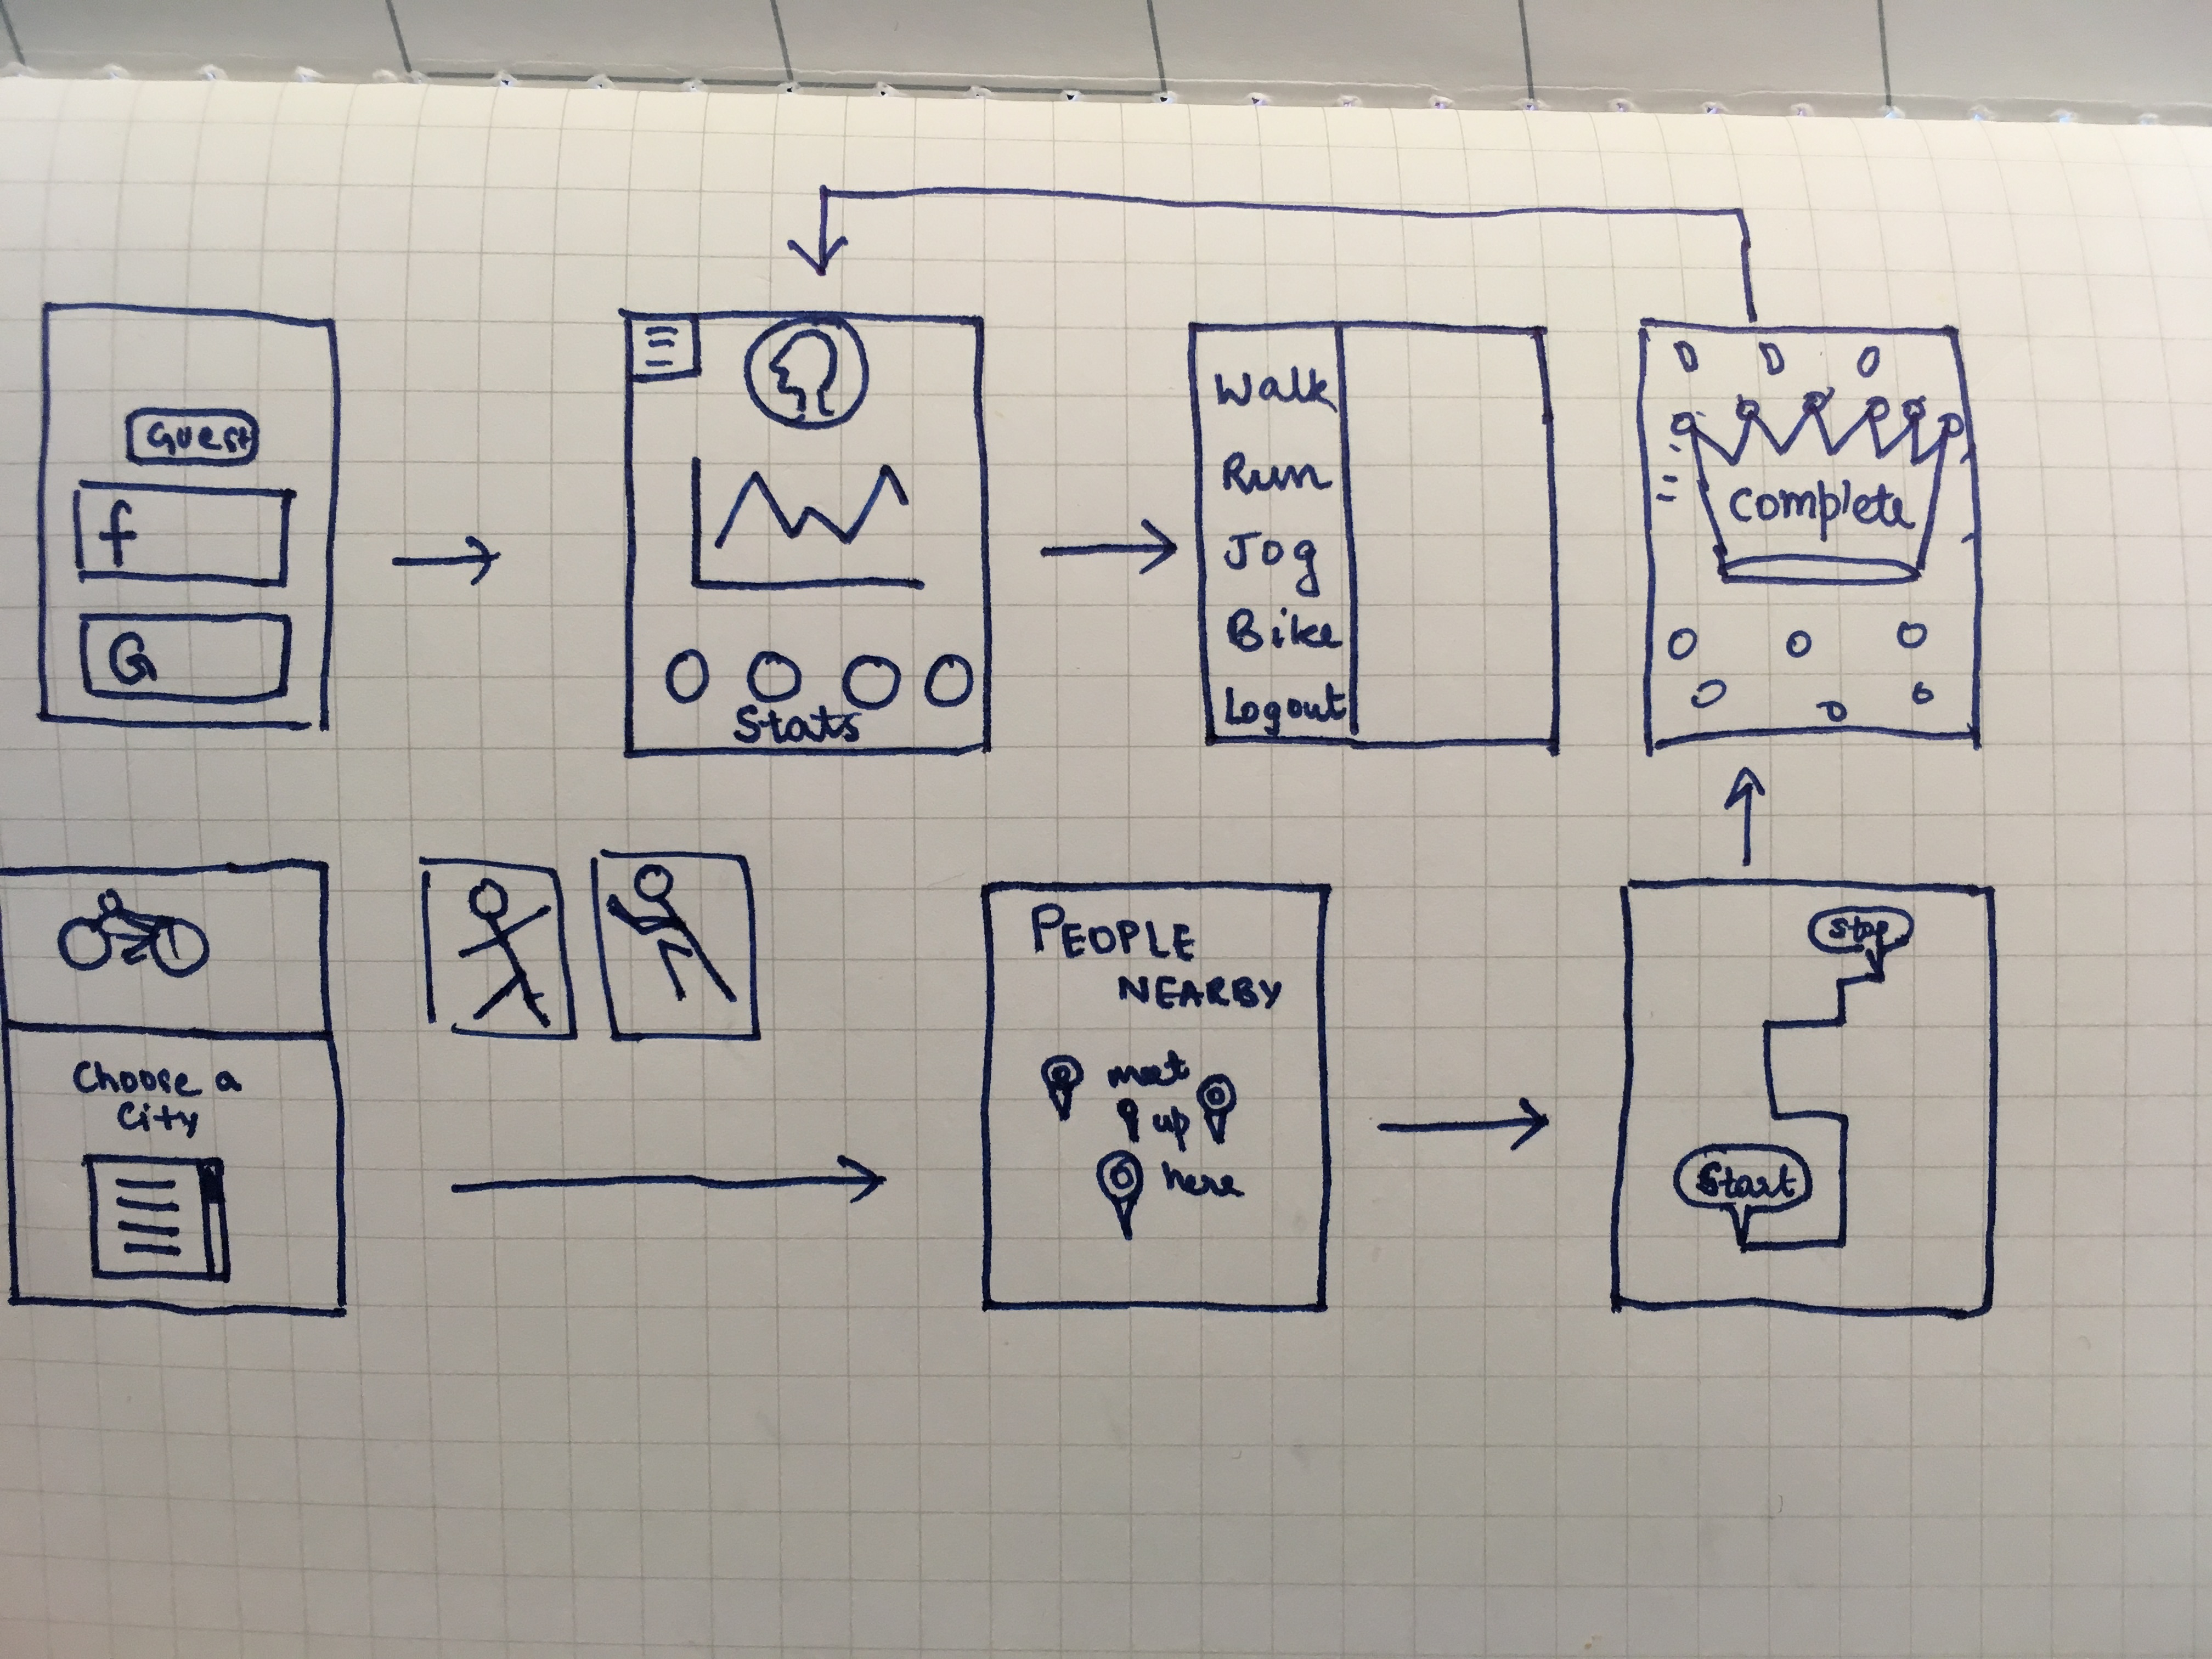 Guest
f
G
Stats
Walk
Run
Jog
Bike
Logout
Complete
Choose a
City
PEOPLE
NEARBY
meet
up
here
Stop
Start